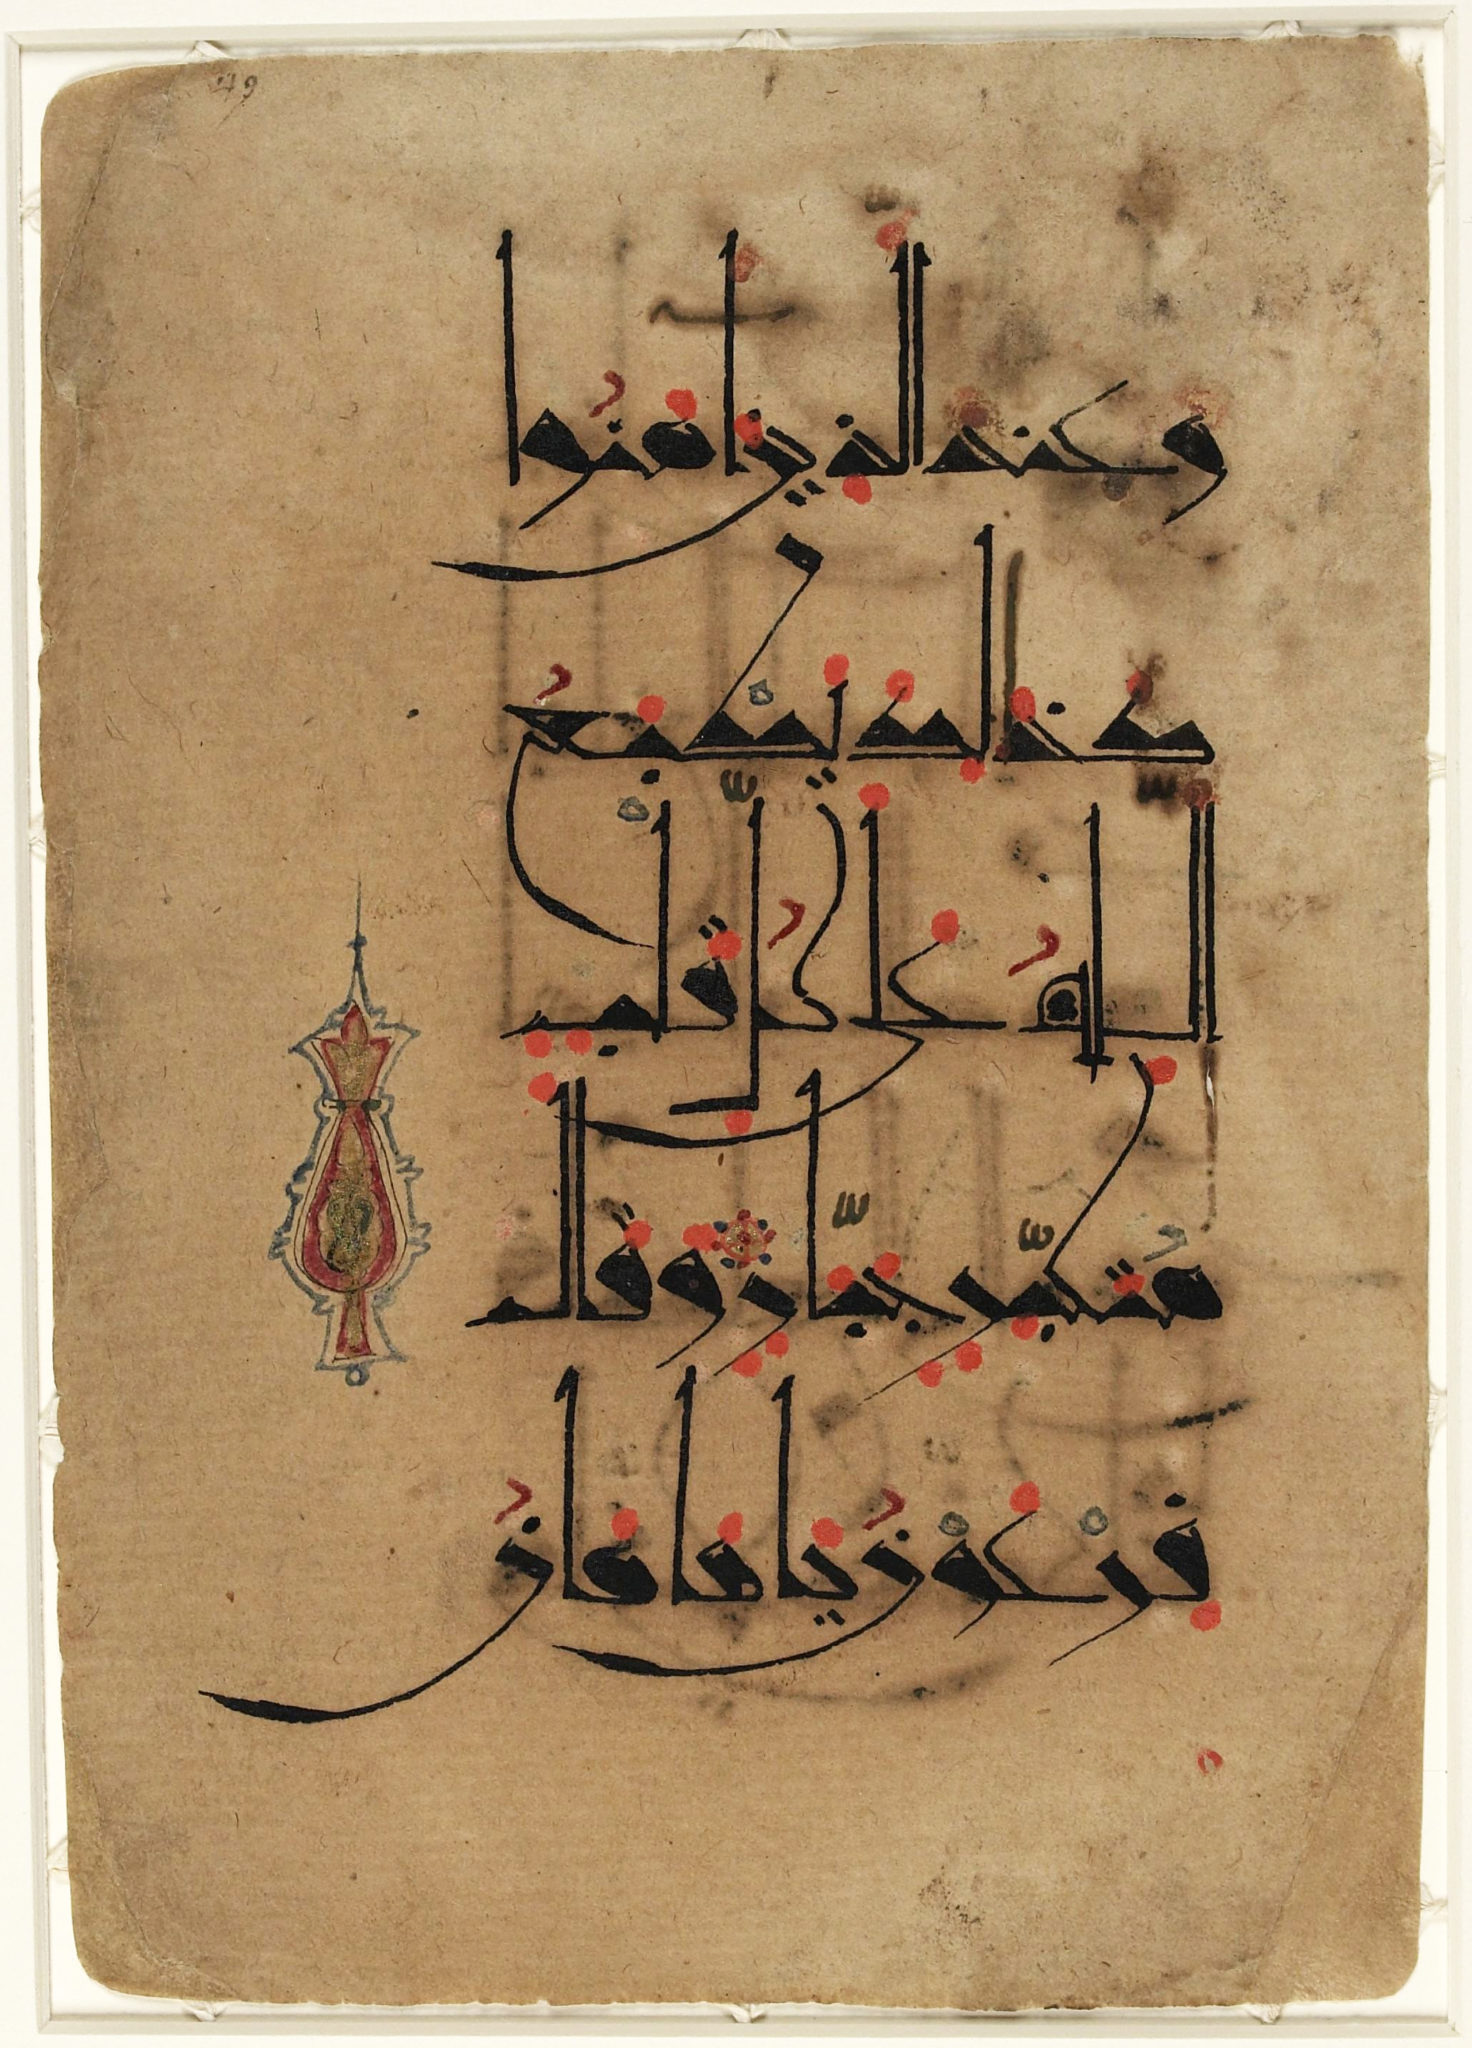 49
وَعِندَ الَّذِينَ اٰمَنُوا
كَذٰلِكَ يَطْبَعُ
اللّٰهُ عَلَى كُلِّ قَلْبِ
مُتَكَبِّرٍ جَبَّارٍ وَقَالَ
فِرْعَوْنُ يَا هَامَانُ